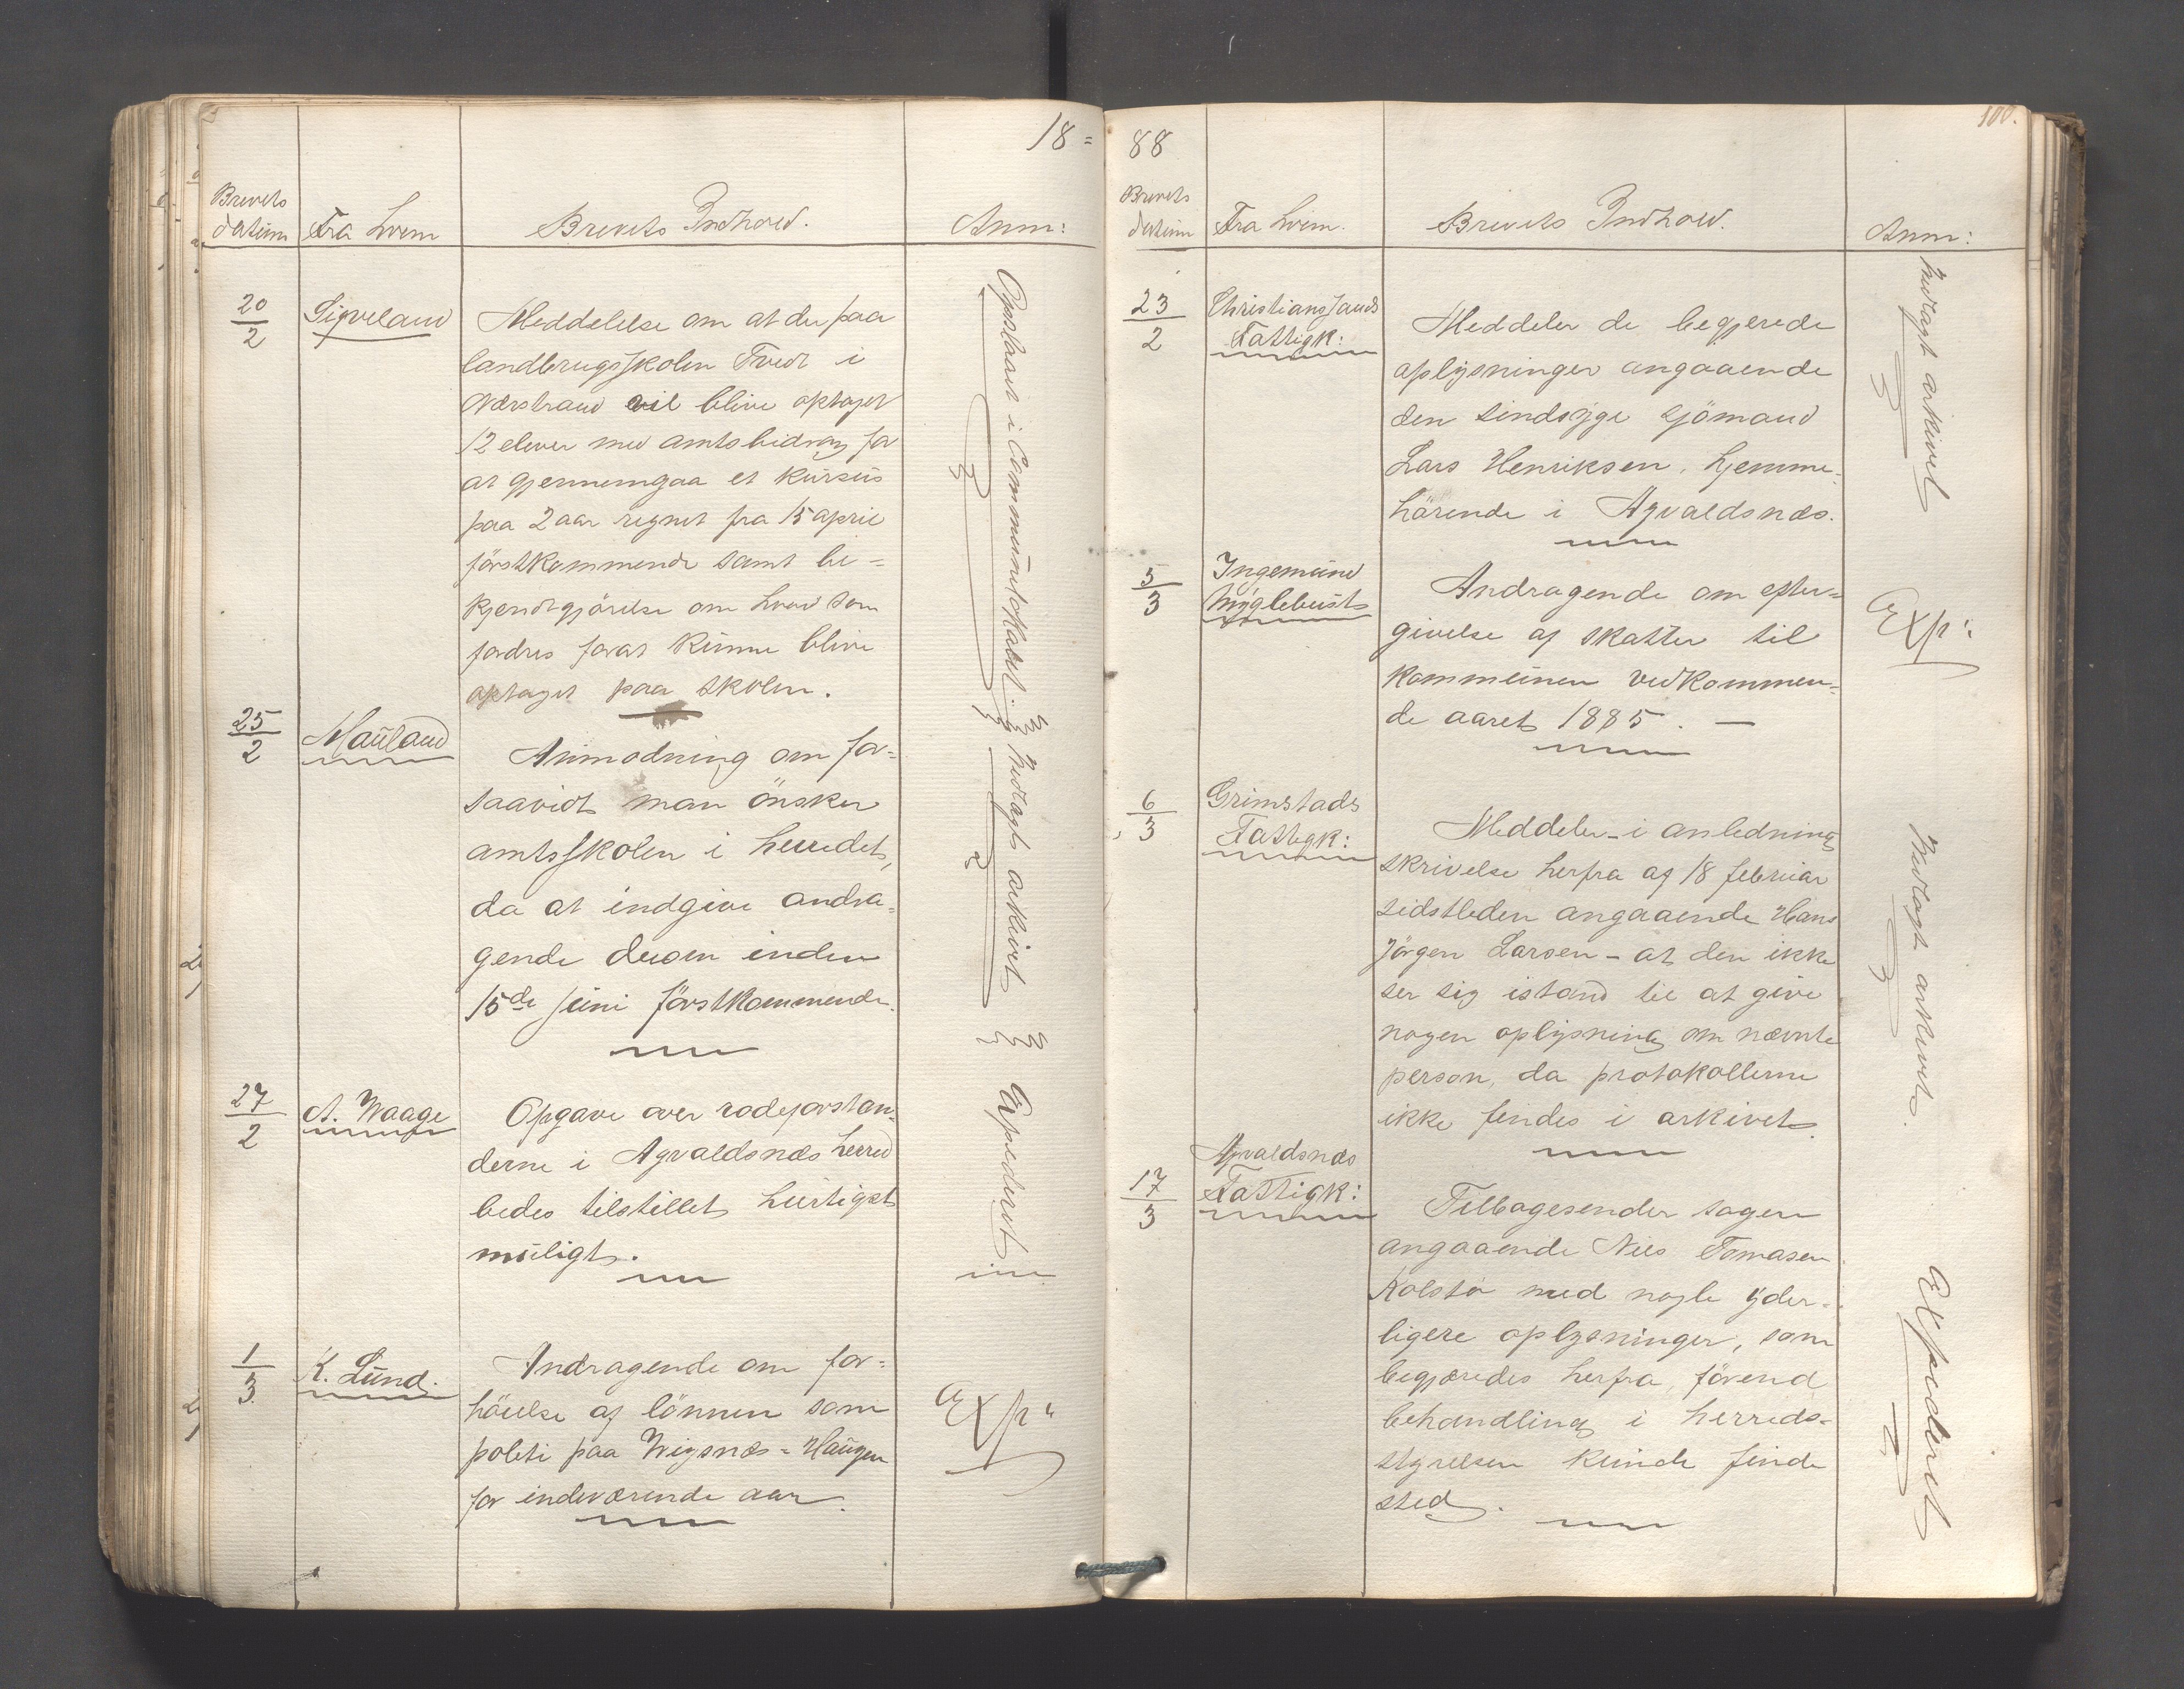 18=
Brevets
datum
Fra hvem
Brevets Indhold.
Anm:
20/2
Sigveland
Meddelelse om at der paa
landbrugsskolen Tveit i
Nærstrand vil blive optaget
12 elever med amtsbidrag for
at gjennemgaa et kursus
paa 2 aar regnet fra 15 april
förstkommende samt be=
kjendtgjörelse om hvad som
fordres forat kunne blive
optaget paa skolen.
Opslaaet i Communelokalet.
25/2
Mauland
Anmodning om for=
saavidt man önsker
amtsskolen i herredet,
da at indgive andra=
gende derom inden
15de juni förstkommende.
Nedlagt arkivet
27/2
A. Waage
Opgave over rodeforstan=
derne i Agvaldsnæs herred
bedes tilstillet hurtigst
muligt.
Expederet
1/3
K. Lund.
Andragende om for=
höielse af lönnen som
politi paa Wigsnæs=Haugen
for indeværende aar.
Exp:
88
100.
Brevets
datum
Fra hvem.
Brevets Indhold.
Anm:
23/2
Christianssands
Fattigk:
Meddeler de begjerede
oplysninger angaaende
den sindsyge sjömand
Lars Henriksen, hjemme=
hörende i Agvaldsnæs.
Nedlagt arkivet
5/3
Ingemund
Nyglebust
Andragende om efter=
givelse af skatter til
kommunen vedkommen=
de aaret 1885. —
Exp:
6/3
Grimstads
Fattigk:
Meddeler - i anledning
skrivelse herfra af 18 februar
sidstleden angaaende Hans
Jörgen Larsen - at den ikke
ser sig istand til at give
nogen oplysning om nævnte
person, da protokollerne
ikke findes i arkivet.
Nedlagt arkivet.
17/3
Agvaldsnæs
Fattigk:
Tilbagesender sagen
angaaende Niels Tomasen
Kolstø med nogle yder=
ligere oplysninger, som
begjæredes herfra, förend
behandling i herreds=
styrelsen kunde finde
sted.
Expederet